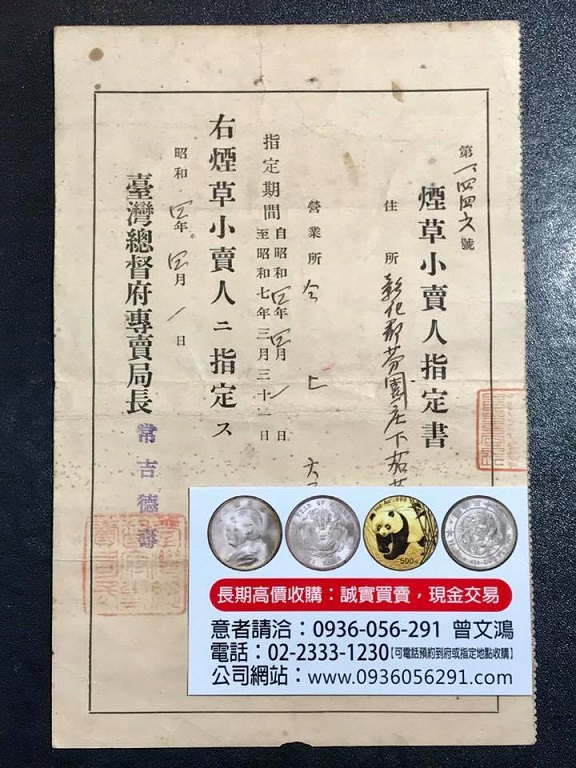 第一四四六號
煙草小賣人指定書
住所彰化郡芬園庄下茄荖
營業所仝上
指定期間自昭和四年四月一日
至昭和七年三月三十一日
右煙草小賣人ニ指定ス
昭和四年四月一日
臺灣總督府專賣局長常吉德壽
長期高價收購：誠實買賣，現金交易
意者請洽：0936-056-291 曾文鴻
電話：02-2333-1230【可電話預約到府或指定地點收購】
公司網站：www.0936056291.com